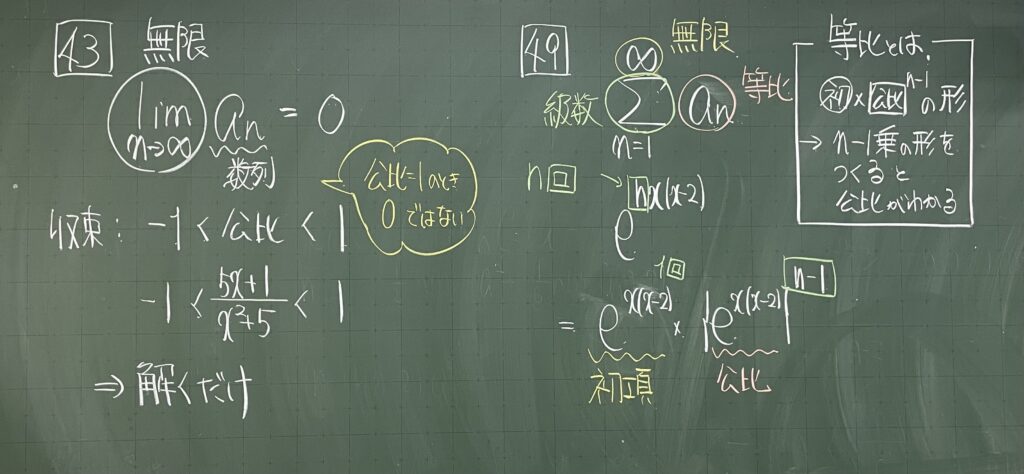 43 無限
lim n→∞ an = 0
数列
公比=1のとき
0ではない
収束: -1 < 公比 < 1
-1 < (5x+1)/(x²+5) < 1
⇒ 解くだけ
49 無限
級数 ∞ Σ n=1 an 等比
n回 → e^nx(x-2)
1回
= e^x(x-2) × {e^x(x-2)}^n-1
初項 公比
等比とは、
初×公比^n-1の形
→ n-1乗の形を
つくると
公比がわかる